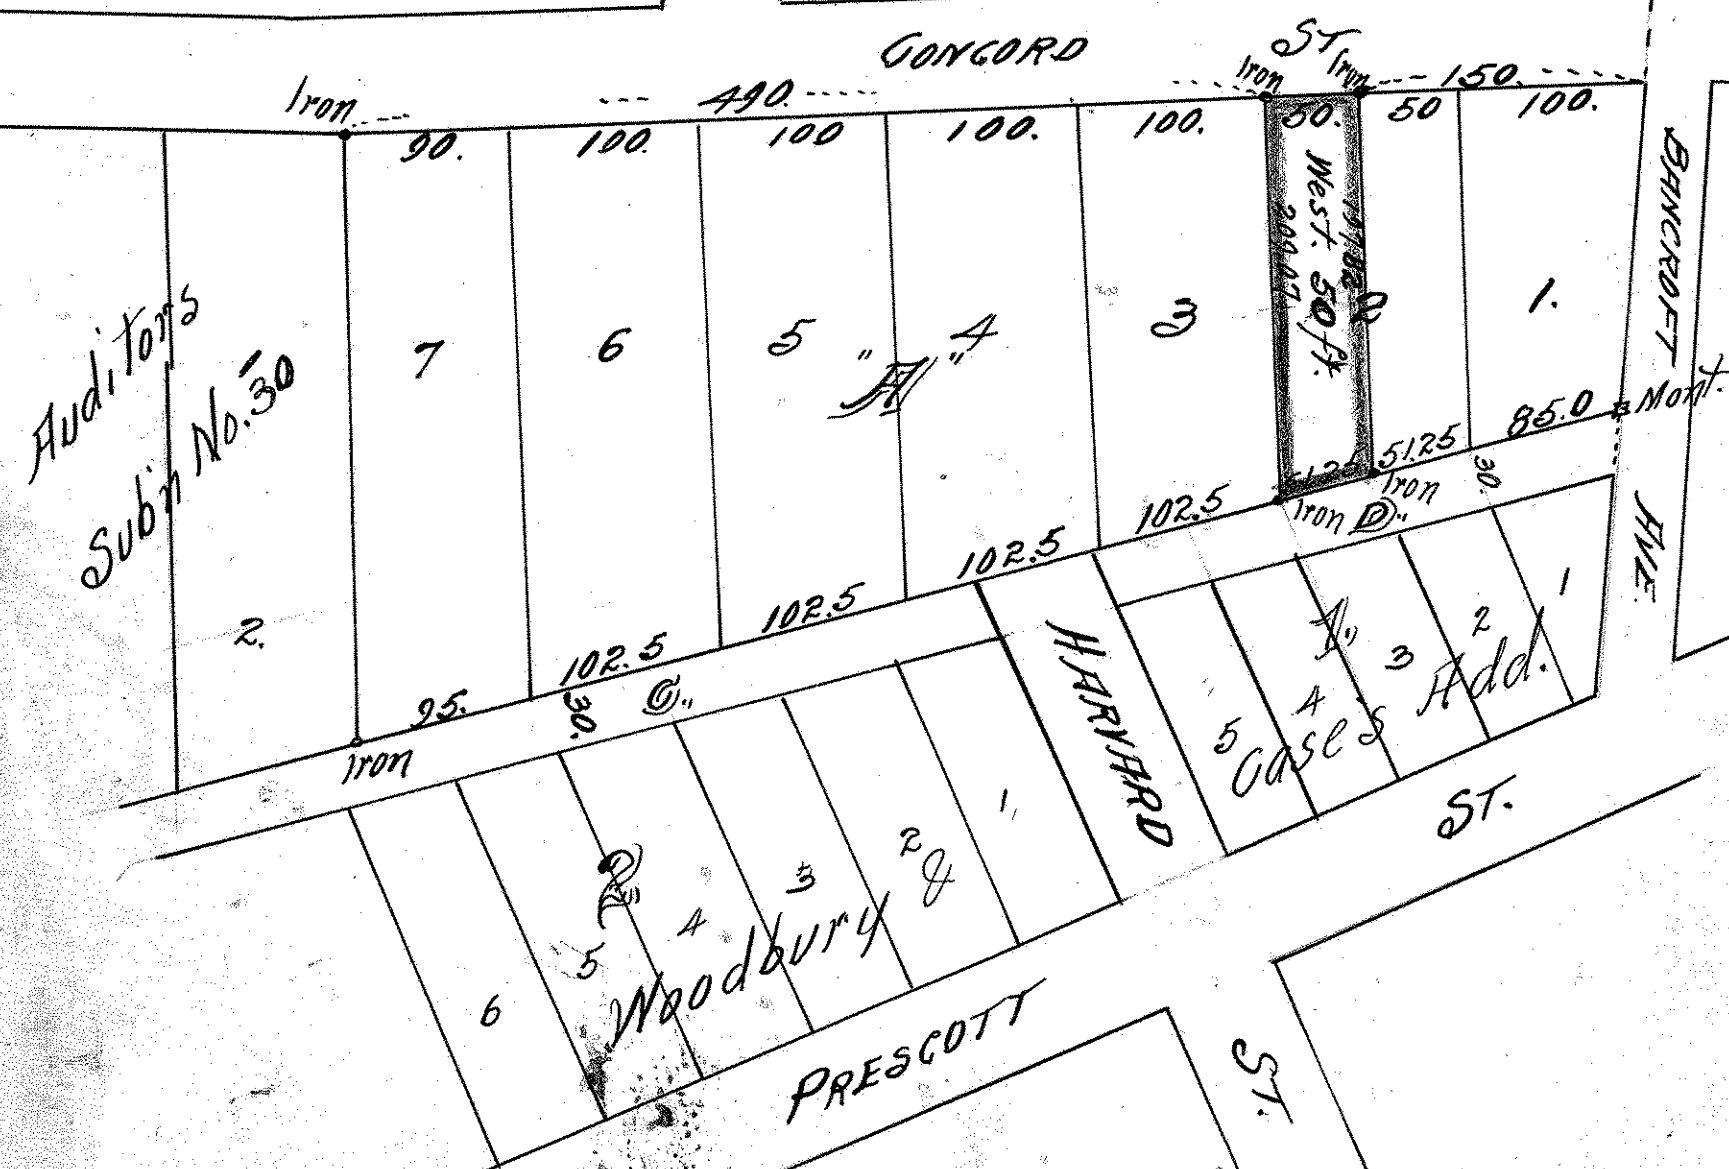 CONCORD ST.
Iron
490.
Iron
Iron
150.
90.
100.
100
100.
100.
50.
50
100.
BANCROFT AVE.
Auditors
Subn No. 30
2.
7
6
5
"A"
4
3
West. 50 ft.
209.07
2
1.
85.0
Mont.
51.25
51.25
30.
Iron
Iron
"D"
102.5
102.5
102.5
102.5
95.
30.
"C"
Iron
HARVARD ST.
5
4
3
2
1
Case's Add.
6
5
4
3
2
1
Woodbury &
PRESCOTT ST.